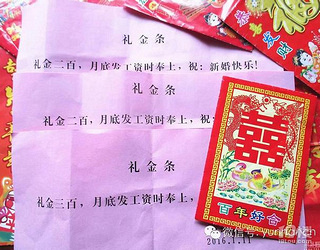 礼金条
礼金二百，月底发工资时奉上，祝：新婚快乐！
礼金条
礼金二百，月底发工资时奉上，祝：
礼金条
礼金三百，月底发工资时奉上，
囍
百年好合
微信号:
2016.1.11